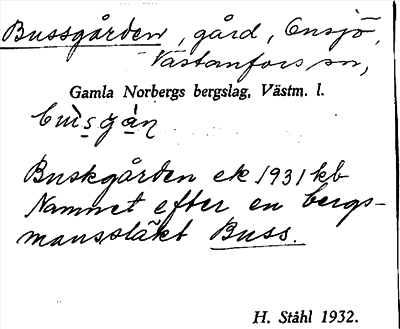 Bussgården, gård, Ensjö,
Västanfors sn,
Gamla Norbergs bergslag, Västm. l.
Buskgården ek 1931 kb
Namnet efter en bergs-
manssläkt Buss.
H. Ståhl 1932.